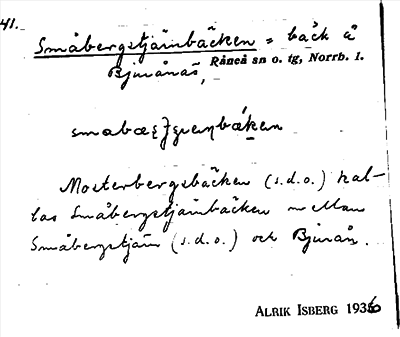 41.
Småbergstjärnbäcken = bäck å
Råneå sn o. tg, Norrb. l.
Bjurånäs,
Mosterbergsbäcken (s.d.o.) kal-
las Småbergstjärnbäcken mellan
Småbergstjärn (s.d.o.) och Bjurån.
ALRIK ISBERG 1936